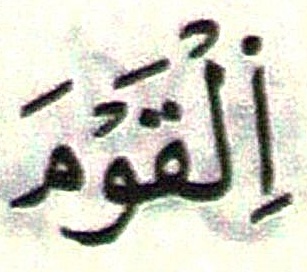 اِ۬لْقَوْمَ